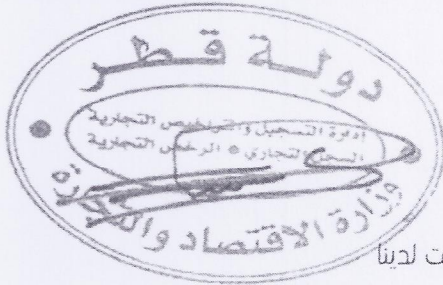 دولة قطر
إدارة التسجيل والتراخيص التجارية
السجل التجاري • الرخص التجارية
وزارة الاقتصاد والتجارة
ت لدينا